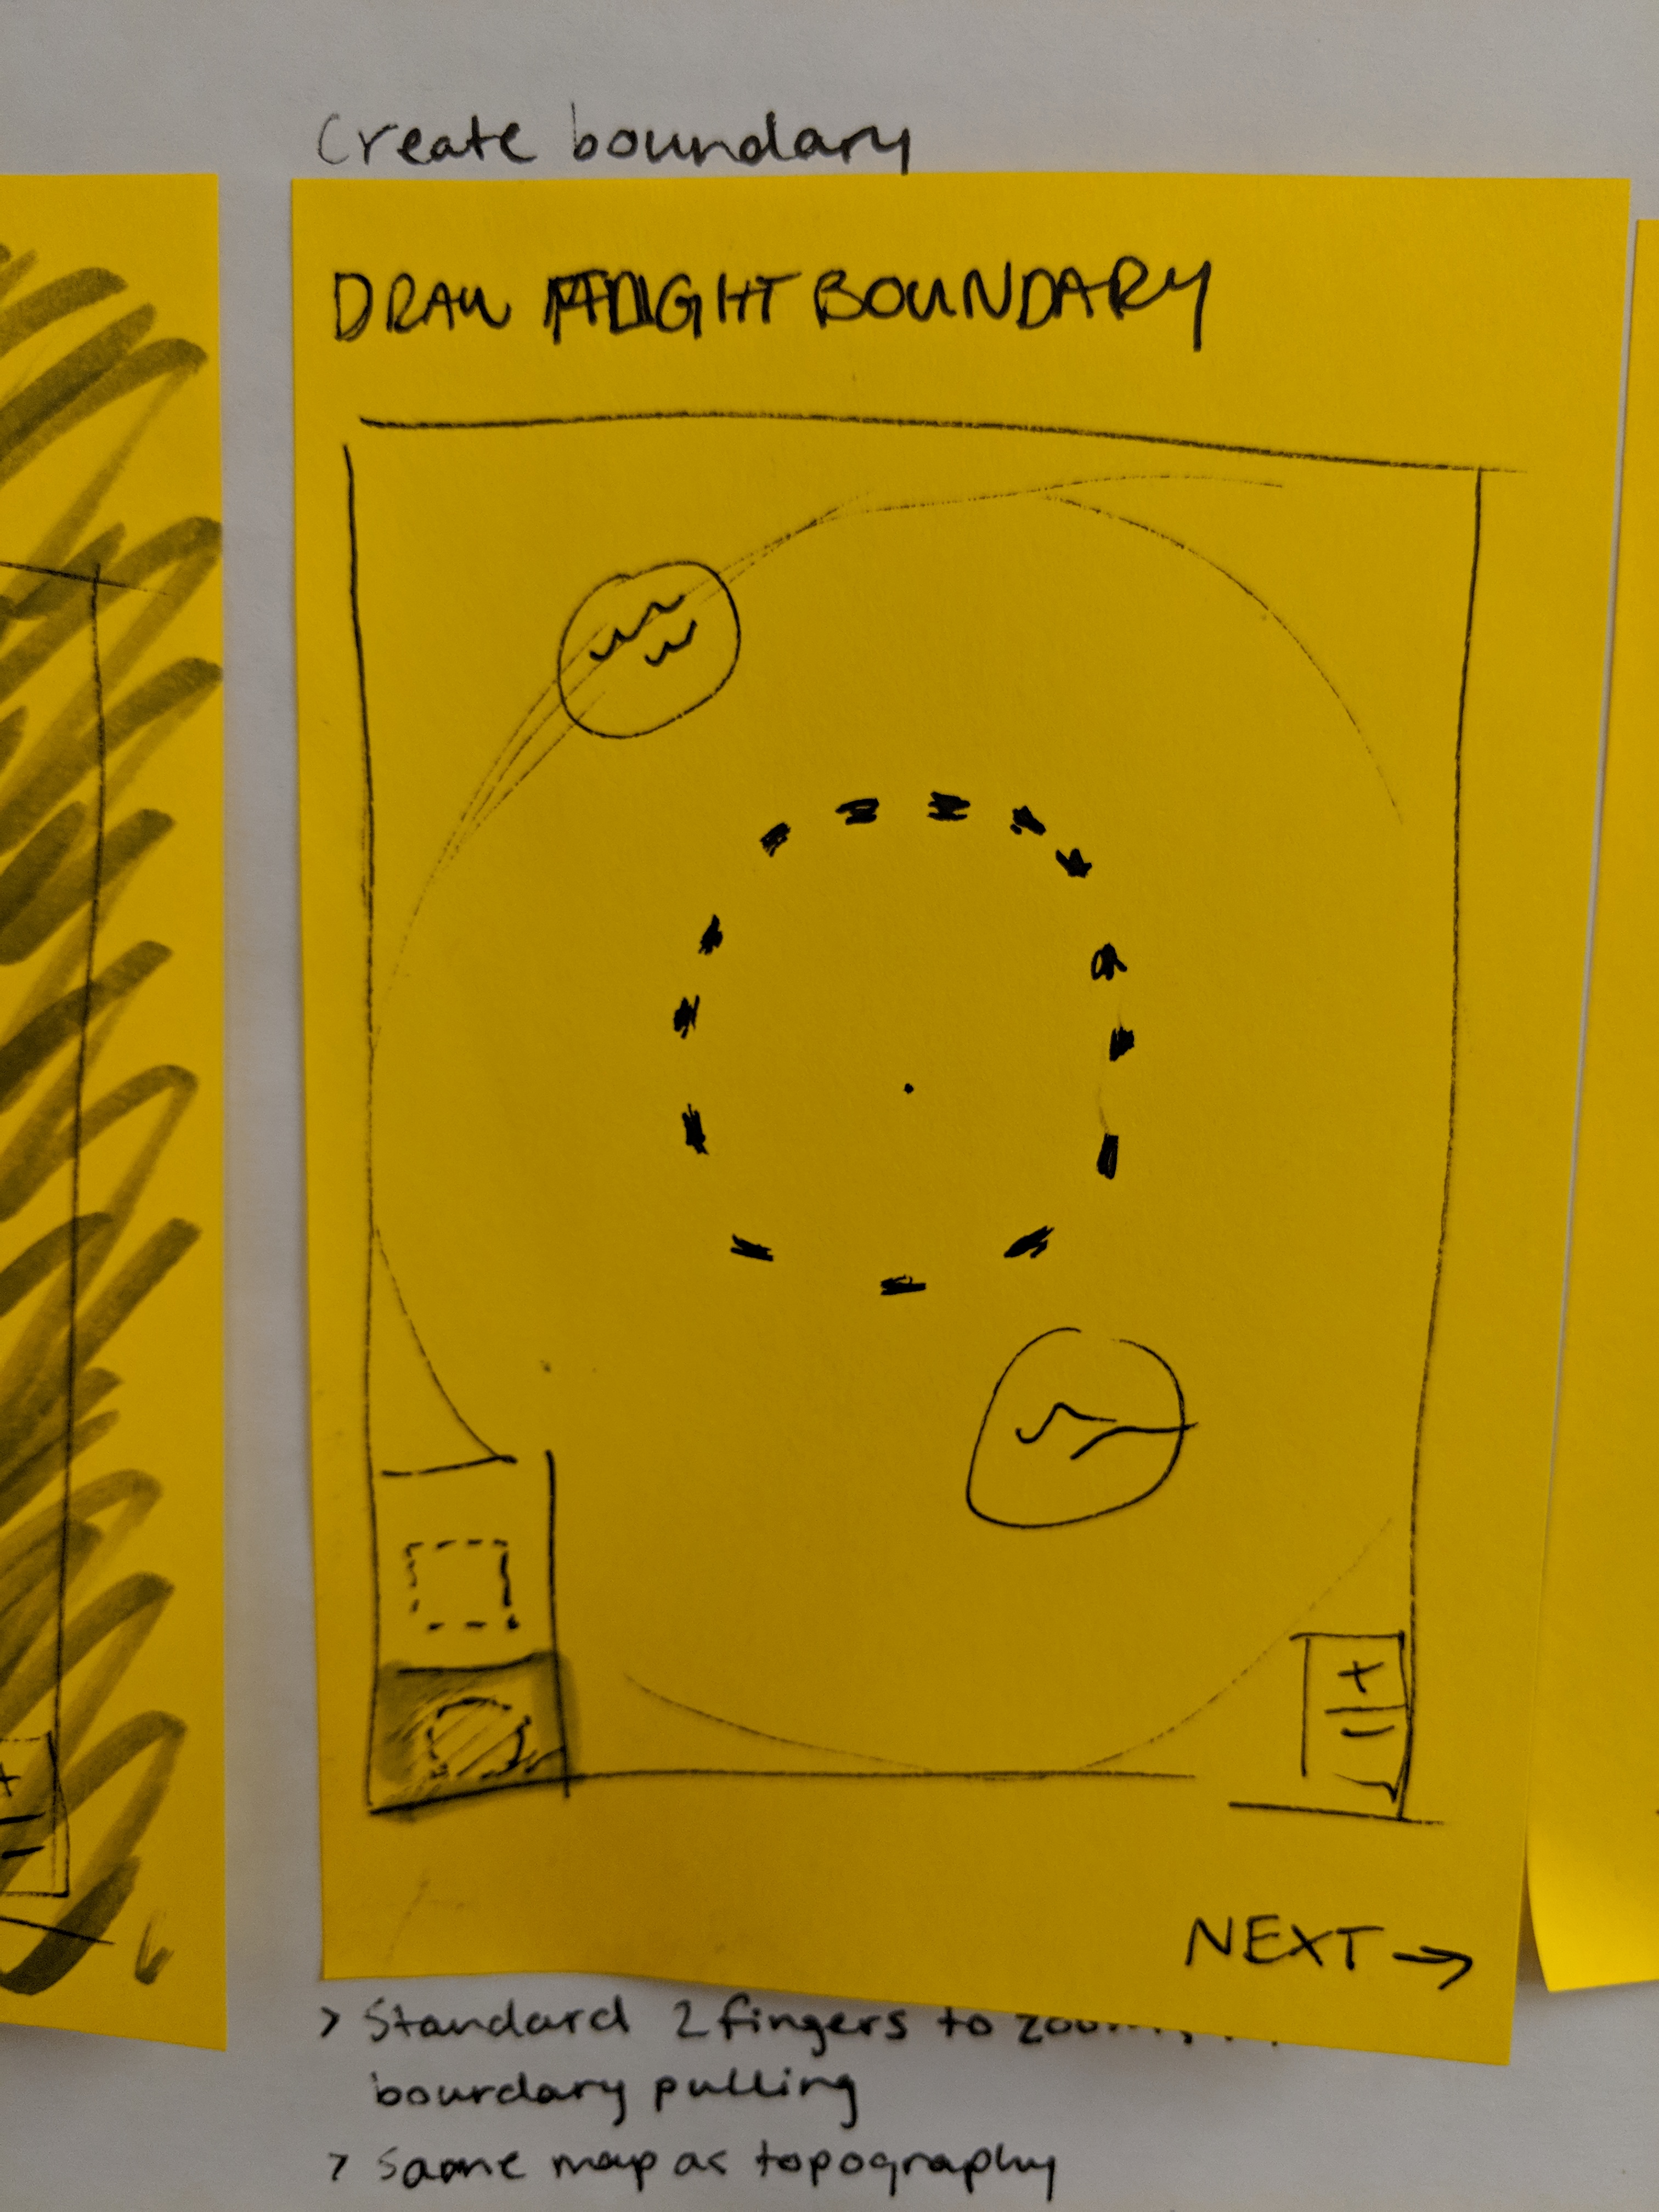 Create boundary
DRAW FLIGHT BOUNDARY
+
-
NEXT →
> Standard 2 fingers to
boundary pulling
> Same map as topography